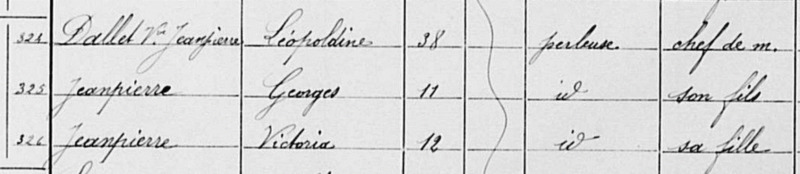 324 Dallet Vve Jeanpierre Léopoldine 38 perleuse chef de m.
325 Jeanpierre Georges 11 id son fils
326 Jeanpierre Victoria 12 id sa fille